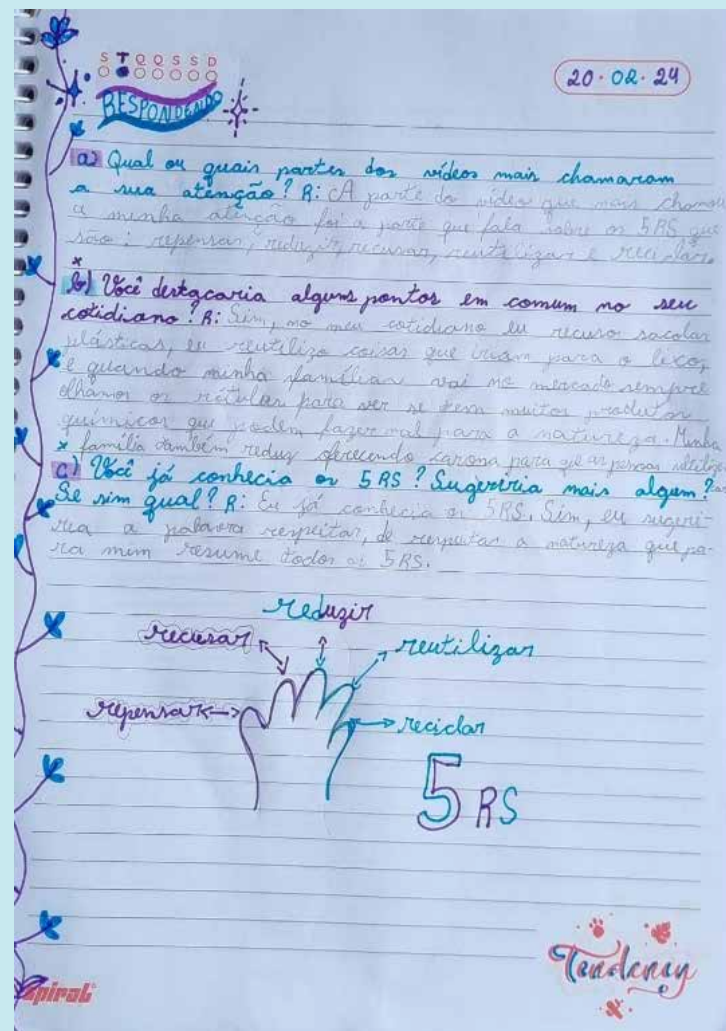 S T Q Q S S D
20·02·24
RESPONDENDO
a) Qual ou quais partes dos vídeos mais chamaram
a sua atenção? R: A parte do vídeo que mais chamou
a minha atenção foi a parte que fala sobre os 5RS que
são: repensar, reduzir, recusar, reutilizar e reciclar.
b) Você destacaria alguns pontos em comum no seu
cotidiano? R: Sim, no meu cotidiano eu recuso sacolas
plásticas, eu reutilizo coisas que iriam para o lixo,
e quando minha família vai no mercado sempre
olhamos os rótulos para ver se tem muitos produtos
químicos que podem fazer mal para a natureza. Minha
família também reduz oferecendo carona para as pessoas
c) Você já conhecia os 5RS? Sugeriria mais algum?
Se sim qual? R: Eu já conhecia os 5RS. Sim, eu sugeri-
ria a palavra respeitar, de respeitar a natureza que pa-
ra mim resume todos os 5RS.
reduzir
recusar
reutilizar
repensar
reciclar
5 RS
Tendency
spiral